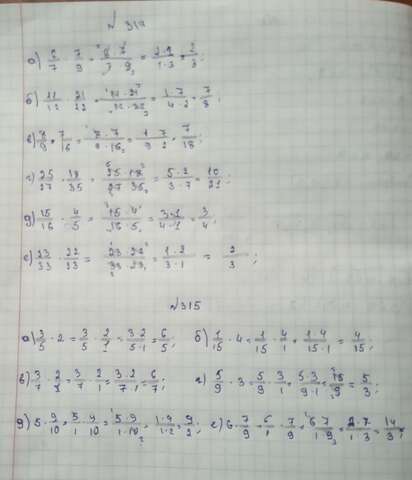 № 314
а) 6/7 · 7/9 = 6·7/7·9 = 2·1/1·3 = 2/3;
б) 11/12 · 21/22 = 11·21/12·22 = 1·7/4·2 = 7/8;
в) 8/9 · 7/16 = 8·7/9·16 = 1·7/9·2 = 7/18;
г) 25/27 · 18/35 = 25·18/27·35 = 5·2/3·7 = 10/21;
д) 15/16 · 4/5 = 15·4/16·5 = 3·1/4·1 = 3/4;
е) 23/33 · 22/23 = 23·22/33·23 = 1·2/3·1 = 2/3;
№315
а) 3/5 · 2 = 3/5 · 2/1 = 3·2/5·1 = 6/5; б) 1/15 · 4 = 1/15 · 4/1 = 1·4/15·1 = 4/15;
в) 3/7 · 2 = 3/7 · 2/1 = 3·2/7·1 = 6/7; г) 5/9 · 3 = 5/9 · 3/1 = 5·3/9·1 = 15/9 = 5/3;
д) 5 · 9/10 = 5/1 · 9/10 = 5·9/1·10 = 1·9/1·2 = 9/2; е) 6 · 7/9 = 6/1 · 7/9 = 6·7/1·9 = 2·7/1·3 = 14/3;